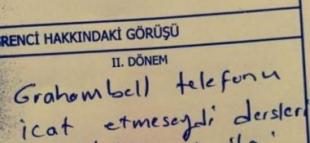 RENCİ HAKKINDAKİ GÖRÜŞÜ
II. DÖNEM
Grahambell telefonu
icat etmeseydi dersleri